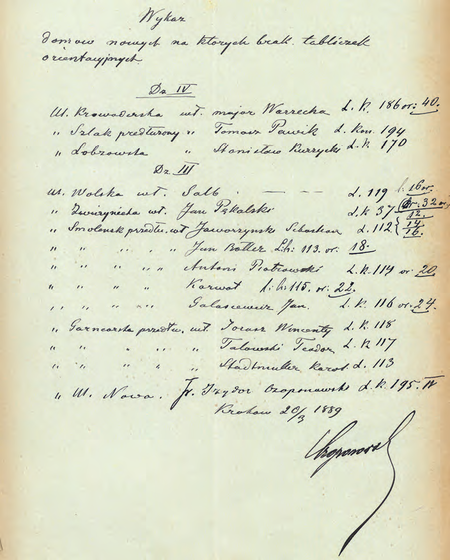 Wykaz
domów nowych na których brak tabliczek
orientacyjnych
Dz IV
Ul. Krowoderska wł. major Warzecha L. k. 186 or: 40.
" Szlak przedłużony " Tomasz Pawik L. kon. 194
" Łobzowska " Stanisław L. k 170
Dz III
Ul. Wolska wł. Salb. — — — L. 119 16 or.
" Zwierzyniecka wł. Jan L. k 37 or. 32
" Smoleńsk przedłu. wł Jaworzynski L. 112 12 14 16.
" " " Jan L. k. 113. or. 18.
" " " " Antoni Piotrowski L. k. 114 or 20
" " " " Karwat L. k. 115. or. 22.
" " " " Galasiewicz Jan L. k. 116 or. 24.
" Garncarska przedłu. wł Wincenty L. k 118
" " " " Talowski Teodor L. k 117
" " " " Stadtmuller Karol L. 113
" Ul. Nowa. L. k. 195. IV
Kraków 20/3 1889